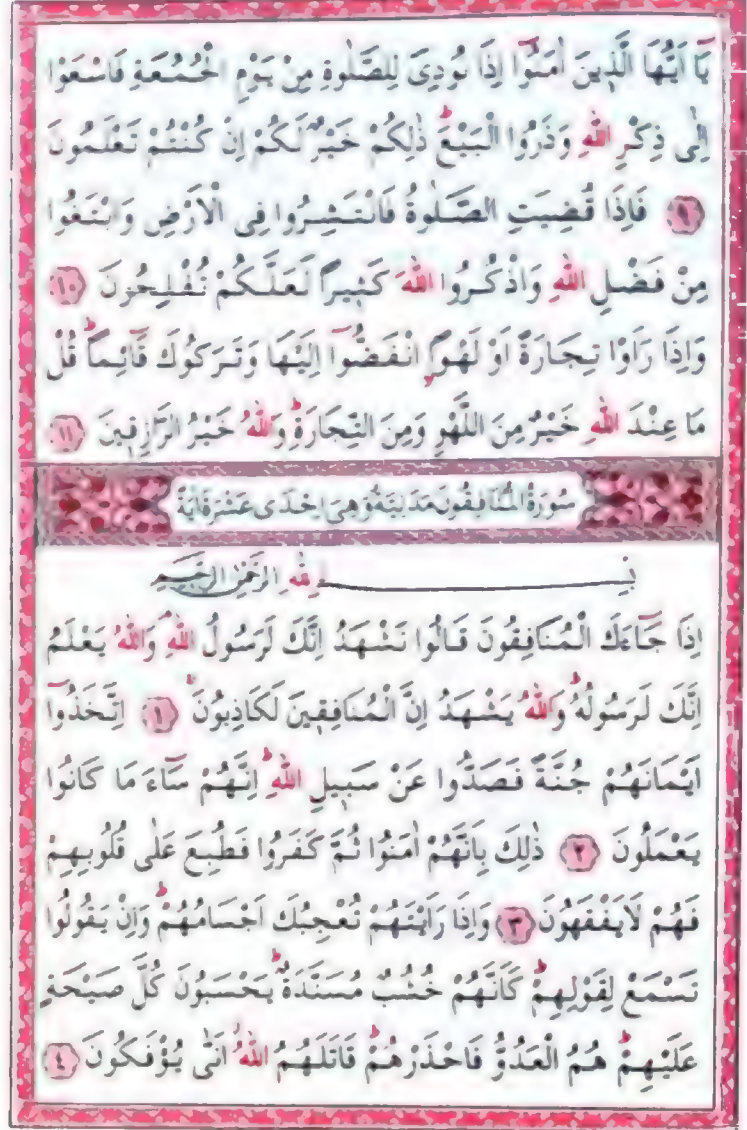 يَٓا اَيُّهَا الَّذ۪ينَ اٰمَنُٓوا اِذَا نُودِيَ لِلصَّلٰوةِ مِنْ يَوْمِ الْجُمُعَةِ فَاسْعَوْا
اِلٰى ذِكْرِ اللّٰهِ وَذَرُوا الْبَيْعَۜ ذٰلِكُمْ خَيْرٌ لَكُمْ اِنْ كُنْتُمْ تَعْلَمُونَ
﴿٩﴾ فَاِذَا قُضِيَتِ الصَّلٰوةُ فَانْتَشِرُوا فِي الْاَرْضِ وَابْتَغُوا
مِنْ فَضْلِ اللّٰهِ وَاذْكُرُوا اللّٰهَ كَث۪يراً لَعَلَّكُمْ تُفْلِحُونَ ﴿١٠﴾
وَاِذَا رَاَوْا تِجَارَةً اَوْ لَهْواًۨ انْفَضُّٓوا اِلَيْهَا وَتَرَكُوكَ قَٓائِماًۜ قُلْ
مَا عِنْدَ اللّٰهِ خَيْرٌ مِنَ اللَّهْوِ وَمِنَ التِّجَارَةِۜ وَاللّٰهُ خَيْرُ الرَّازِق۪ينَ ﴿١١﴾
سُورَةُ الْمُنَافِقُونَ مَدَنِيَّةٌ وَهِيَ اِحْدٰى عَشْرَةَ اٰيَةً
بِسْــــــــــــمِ اللّٰهِ الرَّحْمٰنِ الرَّح۪يمِ
اِذَا جَٓاءَكَ الْمُنَافِقُونَ قَالُوا نَشْهَدُ اِنَّكَ لَرَسُولُ اللّٰهِۢ وَاللّٰهُ يَعْلَمُ
اِنَّكَ لَرَسُولُهُۜ وَاللّٰهُ يَشْهَدُ اِنَّ الْمُنَافِق۪ينَ لَكَاذِبُونَۚ ﴿١﴾ اِتَّخَذُٓوا
اَيْمَانَهُمْ جُنَّةً فَصَدُّوا عَنْ سَب۪يلِ اللّٰهِۜ اِنَّهُمْ سَٓاءَ مَا كَانُوا
يَعْمَلُونَ ﴿٢﴾ ذٰلِكَ بِاَنَّهُمْ اٰمَنُوا ثُمَّ كَفَرُوا فَطُبِعَ عَلٰى قُلُوبِهِمْ
فَهُمْ لَا يَفْقَهُونَ ﴿٣﴾ وَاِذَا رَاَيْتَهُمْ تُعْجِبُكَ اَجْسَامُهُمْۜ وَاِنْ يَقُولُوا
تَسْمَعْ لِقَوْلِهِمْۜ كَاَنَّهُمْ خُشُبٌ مُسَنَّدَةٌۜ يَحْسَبُونَ كُلَّ صَيْحَةٍ
عَلَيْهِمْۜ هُمُ الْعَدُوُّ فَاحْذَرْهُمْۜ قَاتَلَهُمُ اللّٰهُۘ اَنّٰى يُؤْفَكُونَ ﴿٤﴾